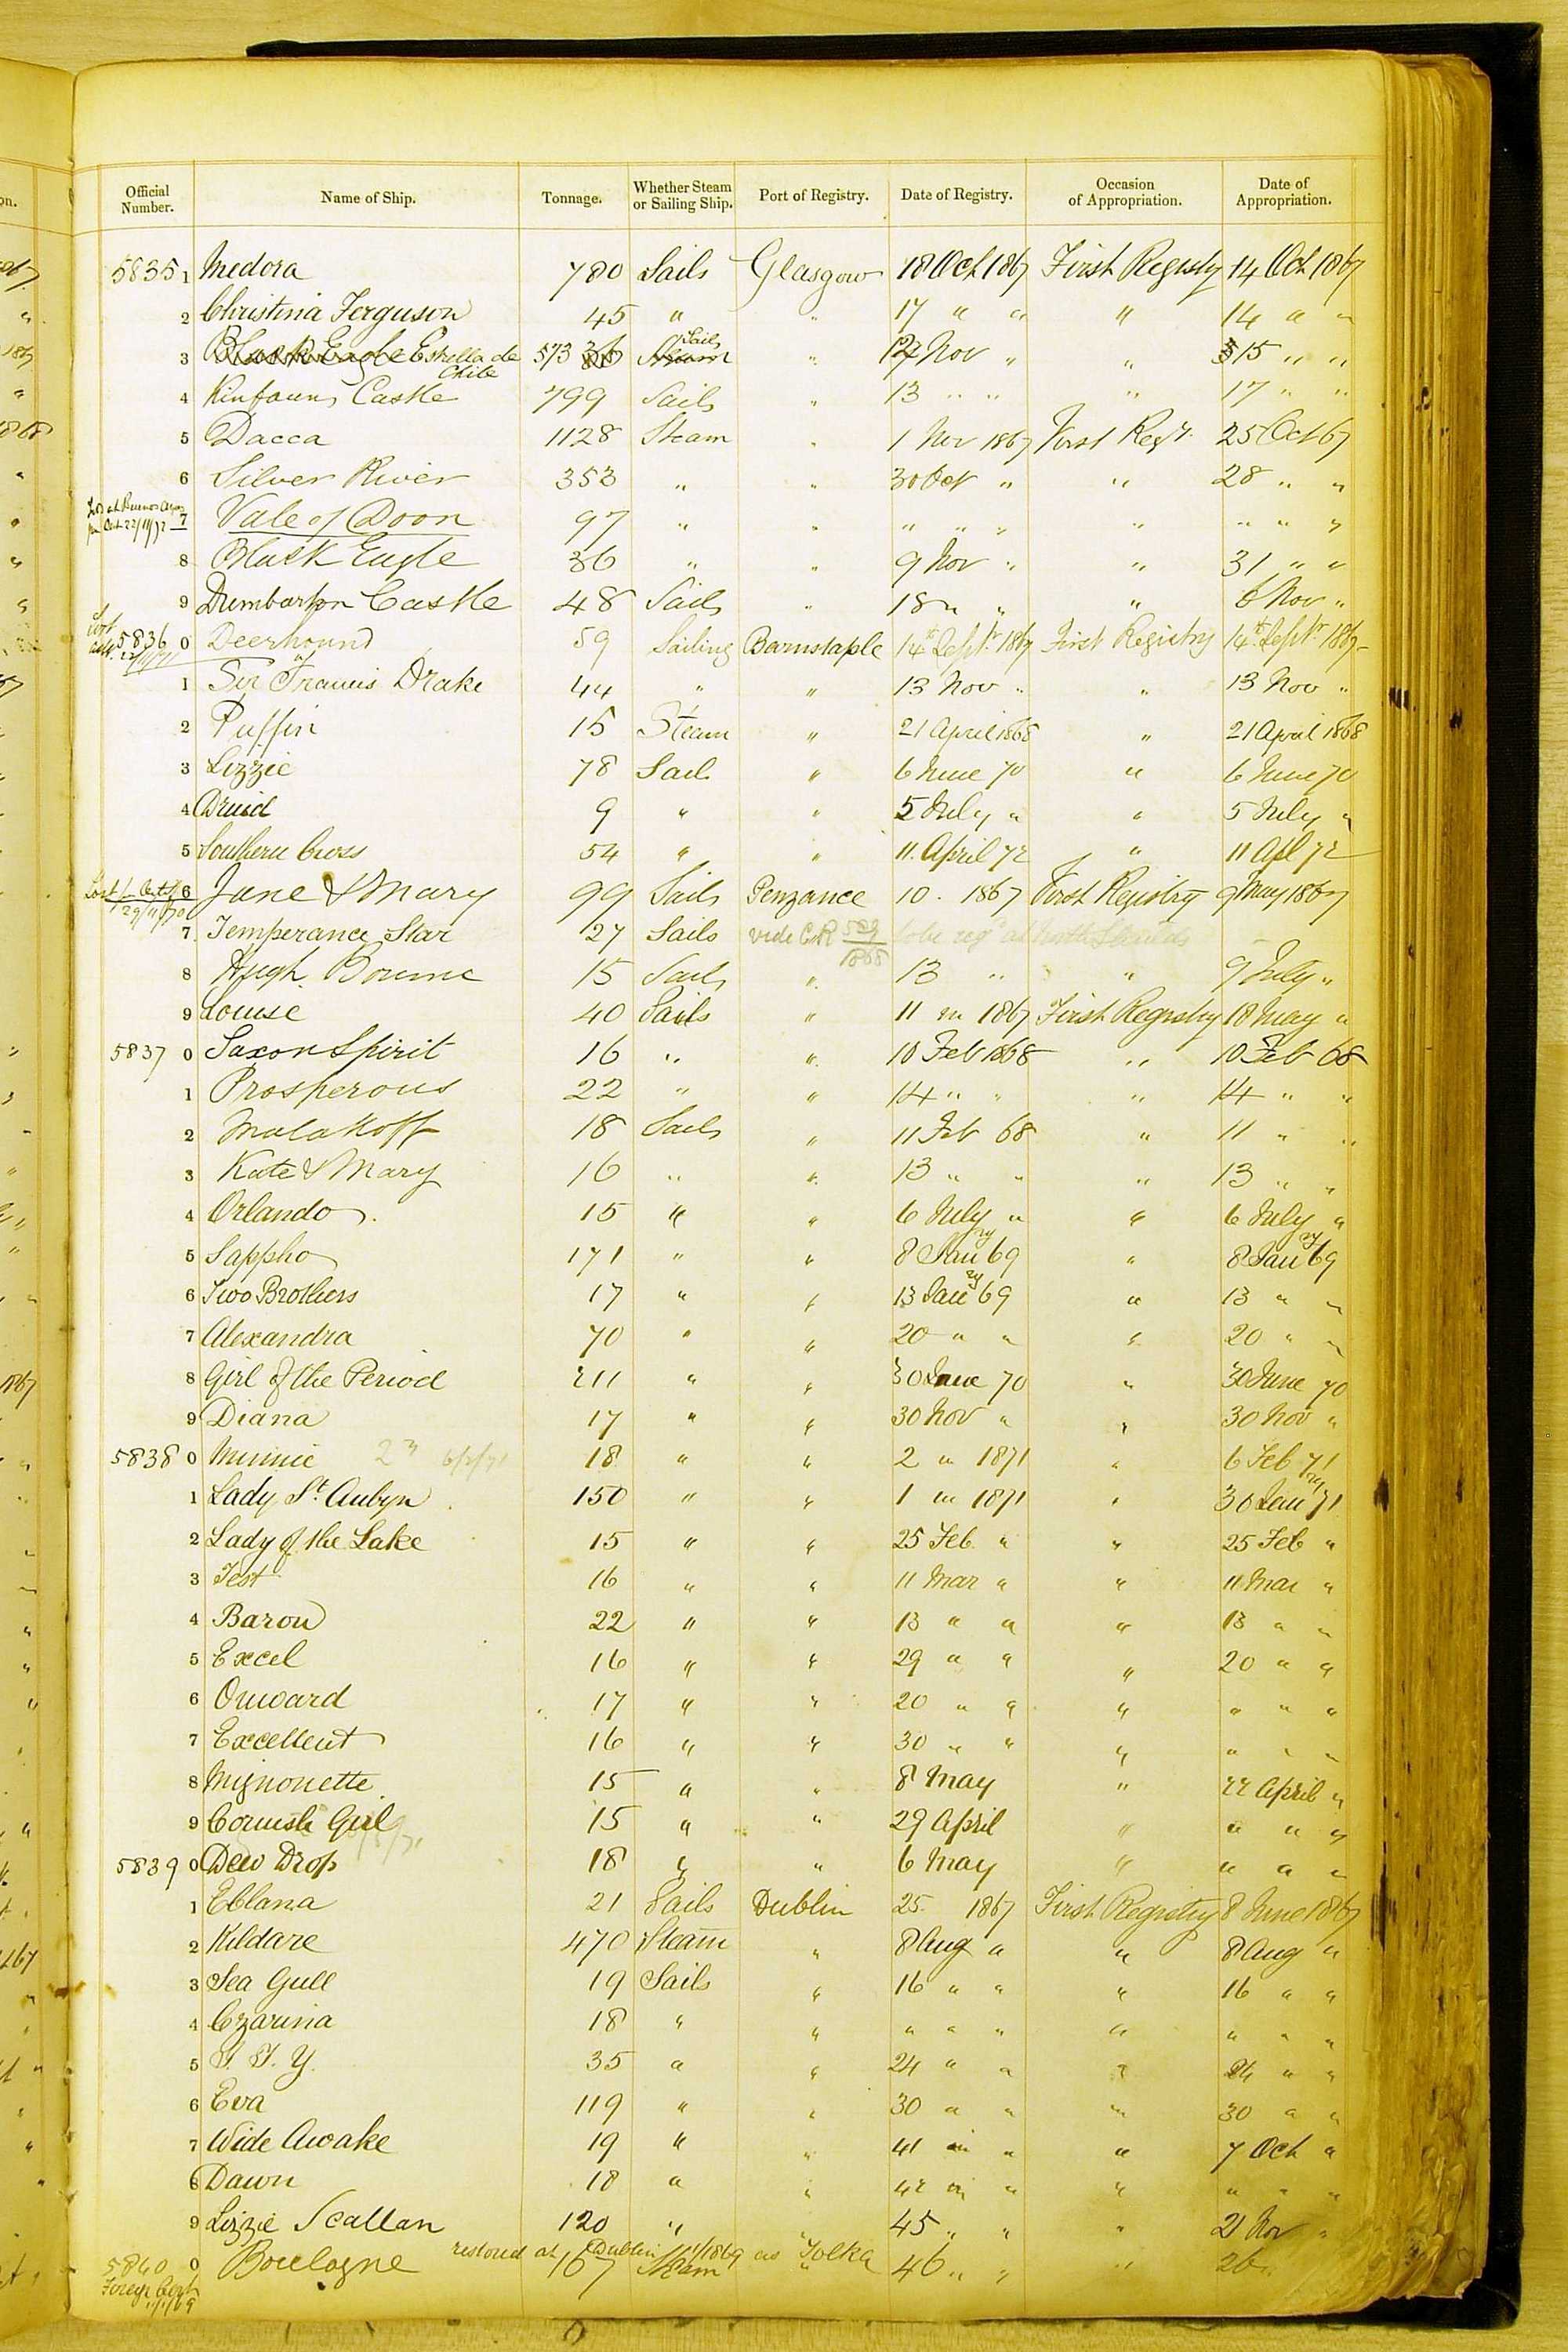 Official Number. Name of Ship. Tonnage. Whether Steam or Sailing Ship. Port of Registry. Date of Registry. Occasion of Appropriation. Date of Appropriation.
5835 1 Medora 780 Sails Glasgow 18 Oct 1867 First Registry 14 Oct 1867
2 Christina Ferguson 45 " " 17 " " " 14 " "
3 Black Eagle Estrella de Chile 573 36 Steam Sails " Nov " " 15 " "
4 Kinfauns Castle 799 Sails " 13 " " " 17 " "
5 Dacca 1128 Steam " 1 Nov 1867 First Regy. 25 Oct 67
6 Silver River 353 " " 30 Oct " " 28 " "
Lost at Buenos Ayres
7 Vale of Doon 97 " " " " " " " " "
8 Black Eagle 36 " " 9 Nov " " 31 " "
9 Dumbarton Castle 48 Sails " 18 " " " 6 Nov "
5836 0 Deerhound 59 Sailing Barnstaple 14th Septr 1867 First Registry 14th Septr 1867
1 Sir Francis Drake 44 " " 13 Nov " " 13 Nov "
2 Puffin 15 Steam " 21 April 1868 " 21 April 1868
3 Lizzie 78 Sails " 6 June 70 " 6 June 70
4 Druid 9 " " 5 July " " 5 July "
5 Southern Cross 54 " " 11 April 72 " 11 Apl 72
Lost 29/11/70
6 Jane & Mary 99 Sails Penzance 10 . 1867 First Registry 9 May 1867
7 Temperance Star 27 Sails vide C.R. 529/1868 to be regd at North Shields
8 Hugh Bourne 15 Sails " 13 " " 9 July "
9 Louise 40 Sails " 11 in 1867 First Registry 18 May "
5837 0 Saxon Spirit 16 " " 10 Feb 1868 " 10 Feb 68
1 Prosperous 22 " " 14 " " " 14 " "
2 Malakoff 18 Sails " 11 Feb 68 " 11 " "
3 Kate & Mary 16 " " 13 " " " 13 " "
4 Orlando 15 " " 6 July " " 6 July "
5 Sappho 171 " " 8 Jany 69 " 8 Jany 69
6 Two Brothers 17 " " 13 Jany 69 " 13 " "
7 Alexandra 70 " " 20 " " " 20 " "
8 Girl of the Period 211 " " 30 June 70 " 30 June 70
9 Diana 17 " " 30 Nov " " 30 Nov "
5838 0 Minnie 18 " " 2 in 1871 " 6 Feb 71
1 Lady St. Aubyn 150 " " 1 in 1871 " 30 Jany 71
2 Lady of the Lake 15 " " 25 Feb " " 25 Feb "
3 Test 16 " " 11 Mar " " 11 Mar "
4 Baron 22 " " 13 " " " 13 " "
5 Excel 16 " " 29 " " " 20 " "
6 Onward 17 " " 20 " " " " " "
7 Excellent 16 " " 30 " " " " " "
8 Mignonette 15 " " 8 May " 22 April "
9 Cornish Girl 15 " " 29 April " " " "
5839 0 Dew Drop 18 " " 6 May " " " "
1 Eblana 21 Sails Dublin 25. 1867 First Registry 8 June 1867
2 Kildare 470 Steam " 8 Aug " " 8 Aug "
3 Sea Gull 19 Sails " 16 " " " 16 " "
4 Czarina 18 " " " " " " " " "
5 T. T. Y. 35 " " 24 " " " 24 " "
6 Eva 119 " " 30 " " " 30 " "
7 Wide Awake 19 " " 41 in " " 7 Oct "
8 Dawn 18 " " 42 in " " " " "
9 Lizzie Scallan 120 " " 45 " " " 21 Nov "
restored at Dublin 1/1869 as Tolka
5840 0 Boulogne 167 Steam " 46 " " " 26 "
Foreign